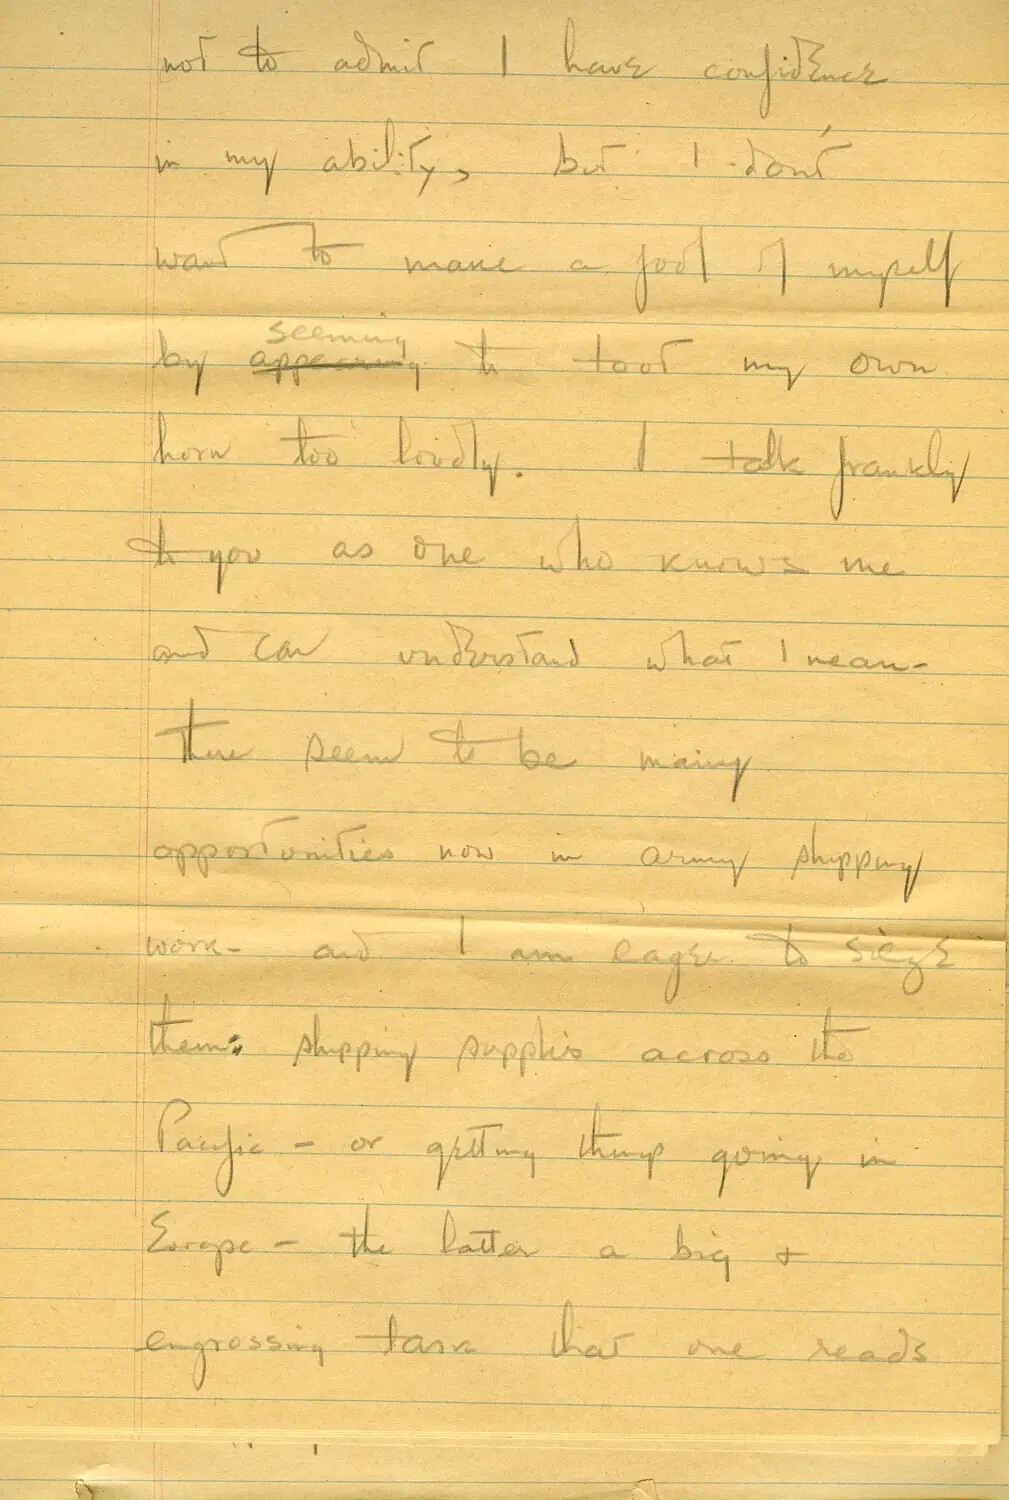 not to admit I have confidence
in my ability, but I don't
want to make a fool of myself
seeming
by appearing to toot my own
horn too loudly. I talk frankly
to you as one who knows me
and can understand what I mean-
There seem to be many
opportunities now in army shipping
work- and I am eager to sieze
them: shipping supplies across the
Pacific - or getting things going in
Europe - the latter a big +
engrossing task that one reads